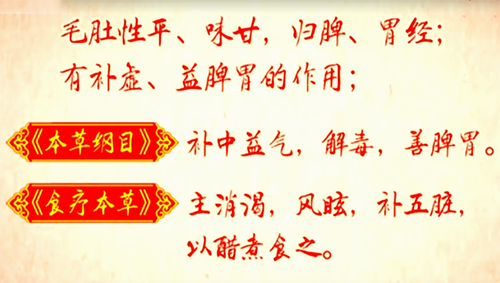 毛肚性平、味甘，归脾、胃经；
有补虚、益脾胃的作用；
《本草纲目》 补中益气，解毒，善脾胃。
《食疗本草》 主消渴，风眩，补五脏，
以醋煮食之。